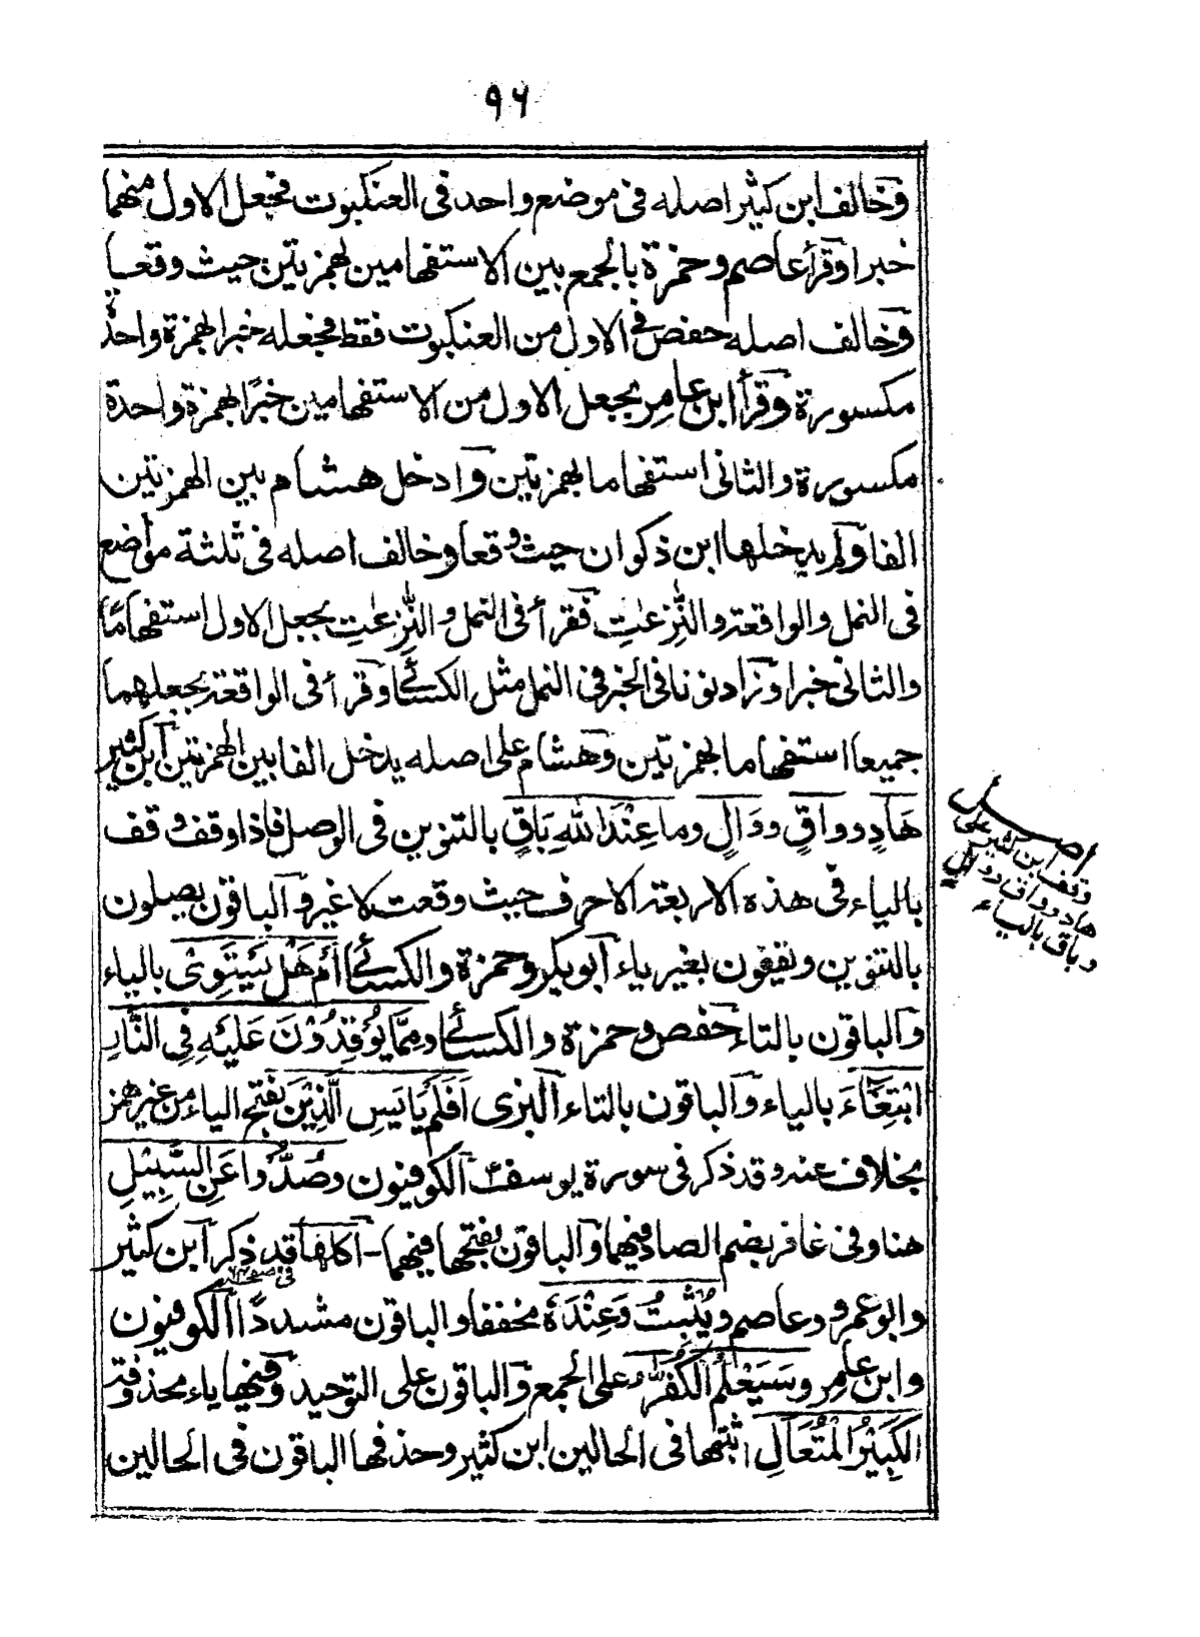 ٩٦
وخالف ابن كثير اصله فى موضع واحد فى العنكبوت فجعل الاول منهما
خبرا وقرأ عاصم وحمزة بالجمع بين الاستفهامين بهمزتين حيث وقعا
وخالف اصله حفص فى الاول من العنكبوت فقط فجعله خبرا بهمزة واحدة
مكسورة وقرأ ابن عامر بجعل الاول من الاستفهامين خبرًا بهمزة واحدة
مكسورة والثانى استفهاما بهمزتين وادخل هشام بين الهمزتين
الفا ولم يدخلها ابن ذكوان حيث وقعا وخالف اصله فى ثلثة مواضع
فى النمل والواقعة والنّٰزعٰتِ فقرأ فى النمل والنّٰزعٰتِ بجعل الاول استفهامًا
والثانى خبرا وزاد نونا فى الخبر فى النمل مثل الكسائى وقرأ فى الواقعة بجعلهما
جميعا استفهاما بهمزتين وهشام على اصله يدخل الفا بين الهمزتين ابن كثير
هَادٍ وواقٍ ووَالٍ وما عِنْدَ اللهِ بَاقٍ بالتنوين فى الوصل فاذا وقف وقف
بالياء فى هذه الاربعة الاحرف حيث وقعت لا غير والباقون يصلون
بالتنوين ويقفون بغير ياء ابو بكر وحمزة والكسائى اَمْ هَلْ يَسْتَوِىْ بالياء
والباقون بالتاء حفص وحمزة والكسائى ومِمَّا يُوْقِدُوْنَ عَلَيْهِ فِى النَّارِ
ابْتِغَآءَ بالياء والباقون بالتاء البزى اَفَلَمْ يَايَسِ الَّذِيْنَ بفتح الياء من غير همز
بخلاف عنه وقد ذكر فى سورة يوسف الكوفيون وصُدُّوْا عَنِ السَّبِيْلِ
هنا وفى غافر بضم الصاد فيهما والباقون بفتحها فيهما - اكلها قد ذكر ابن كثير
وابو عمرو وعاصم ويُثْبِتُ وَعِنْدَهٗ مخففا والباقون مشددًا الكوفيون
وابن عامر وسَيَعْلَمُ الْكُفّٰرُ على الجمع والباقون على التوحيد وفيها ياء محذوفة
الكَبِيْرُ الْمُتَعَالِ اثبتها فى الحالين ابن كثير وحذفها الباقون فى الحالين
اصل
وقف ابن كثير على
هاد وواق ووال
وباق بالياء